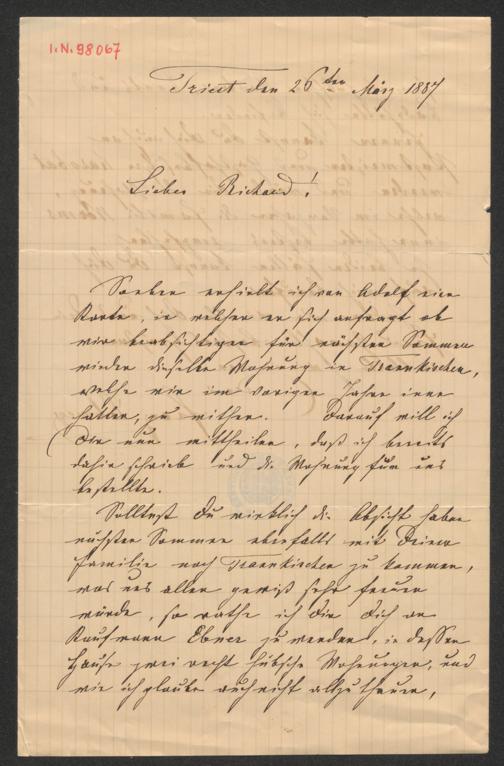 I.N. 98067
Triest den 26ten März 1887
Lieber Richard!
Soeben erhielt ich von Adolf eine
Karte, in welcher er sich anfragt ob
wir beabsichtigen für nächsten Sommer
wieder dieselbe Wohnung in Traunkirchen,
welche wir im vorigen Jahre inne
hatten, zu miethen. Darauf will ich
Dir nun mittheilen, daß ich bereits
dahin schrieb und die Wohnung für uns
bestellte.
Solltest Du wirklich die Absicht haben
nächsten Sommer ebenfalls mit Deiner
Familie nach Traunkirchen zu kommen,
was uns allen gewiß sehr freuen
würde, so rathe ich Dir Dich an
Kaufmann Ebner zu wenden, in dessen
Hause zwei recht hübsche Wohnungen, und
wie ich glaube auch nicht allzu theuer,